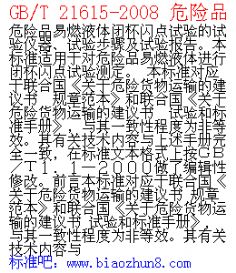 GB/T 21615-2008 危险品
危险品易燃液体闭杯闪点试验的试
验仪器、试验步骤及试验报告。本
标准适用于对危险品易燃液体进行
闭杯闪点试验测定。 本标准对应
于联合国《关于危险货物运输的建
议书　规章范本》和联合国《关于
危险货物运输的建议书　试验和标
准手册》，与其一致性程度为非等
效。其有关技术内容与上述手册完
全一致，在标准文本格式上按GB
/T1.1—2000做了编辑性
修改。前言本标准对应于联合国《
关于危险货物运输的建议书 规章
范本》和联合国《关于危险货物运
输的建议书 试验和标准手册》，
与其一致性程度为非等效。其有关
技术内容与
标准吧：www.biaozhun8.com